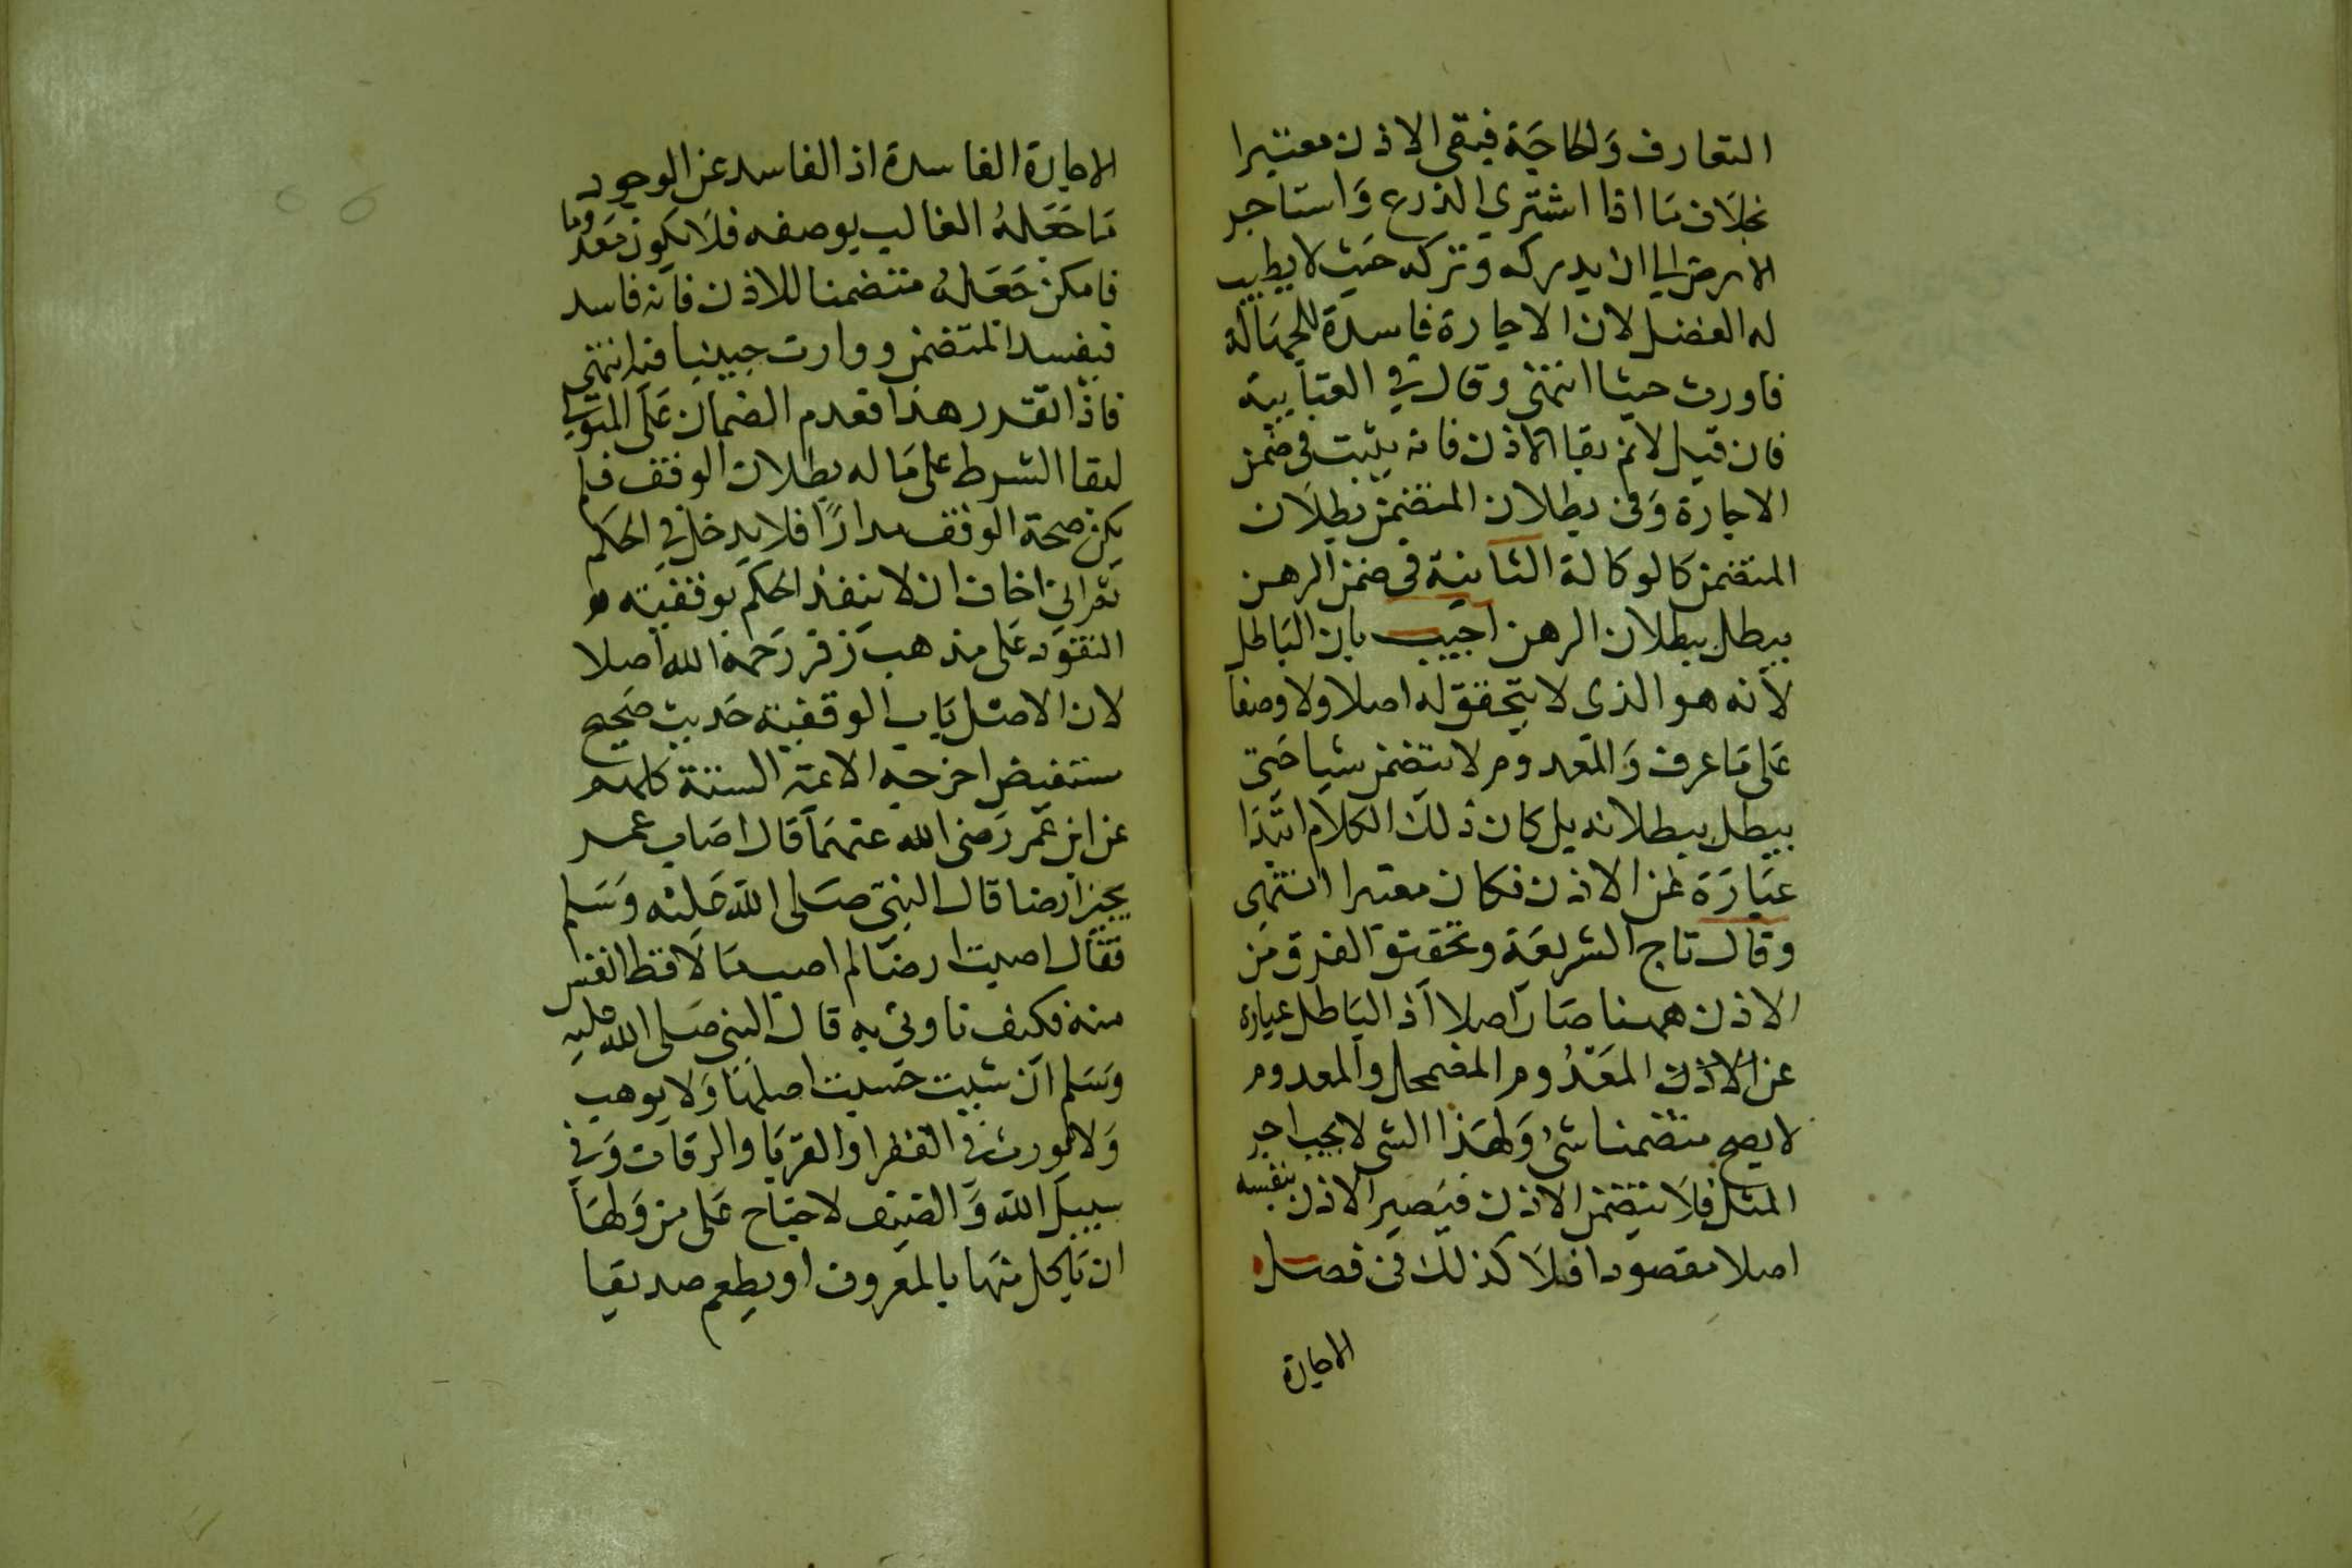 التعارف وَالحاجَة فيبقى الاذن معتبرا
بخلَاف مَا اذا اشتري الذرع وَاستاجر
الارض الي ان يدركه وتركه حَيث لا يطيب
له الفضل لان الاجارة فاسدة للجهَالَة
فاورث حبثا انتهى وقال في العتابية
فان قيل لانم بقا الاذن فانه يثبت في ضمن
الاجارة وَفى بطلان المتضمن بطلَان
المتضمن كالوكالة الثابتة فى ضمن الرهن
يبطل ببطلان الرهن اجَيب بان البَاطل
لأنه هو الذى لا يتحقق له اصلا ولا وصفا
عَلى مَا عرف وَالمعدوم لا يتضمن شيا حَتى
يبطل ببطلانه بل كان ذلك الكلَام ابتدَا
عبَارَة عَن الاذن فكان معتبرا انتهى
وقال تاج الشريعَة وتحقيق الفرق مَن
الاذن ههنا صَار اصلا اذ البَاطل عبارة
عن الاذن المَعْدُوم المضمحل والمعدوم
لا يصح متضمنا شى وَلهَذا الشى لا يجب اجر
المثل فلَا يتضمن الاذن فيَصير الاذن بنفسه
اصلا مقصودا فلَا كذلك فى فصل
الاجارة
الاجارة الفاسدة اذ الفاسد عن الوجود
مَا جَعَلهُ الغالب بوصفه فلَا يكون مَعدوما
فامكن جَعَلهُ متضمنا للاذن فانه فاسد
فيفسد المتضمن ووارت حبيثا فيه انتهى
فاذا تقرر هذا فعدم الضمان عَلَى المتولي
لبقا الشرط على مَا له بطلان الوقف فلم
يكن صحة الوقف مدارًا فلا يدخل في الحكم
ثم اني اخاف ان لا ينفذ الحكم بوقفيته و
النقوَد عَلى مذهب زفر رَحمَه الله اصلا
لان الاصل بَاب الوقفية حَديث صَحيح
مستفيض اخرجه الائمة الستة كلهم
عن ابن عُمَر رَضى الله عنهمَا قال اصَاب عمر
بخيبر ارضا قال النبَى صَلى الله عَليه وَسَلم
فقال اصبت ارضا لم اصب مَا لَا قط انفس
منه فكيف تاوني به قال النبى صَلى الله عليه
وَسَلم ان شيت حَسبت اصلهَا وَلا يوهب
وَلا يورث في الفقرا والقربَا والرقاب وَفي
سبيل الله وَالضيف لا جنَاح عَلى من وَلهَا
ان يَاكل منهَا بالمعَروف او يطعم صديقا